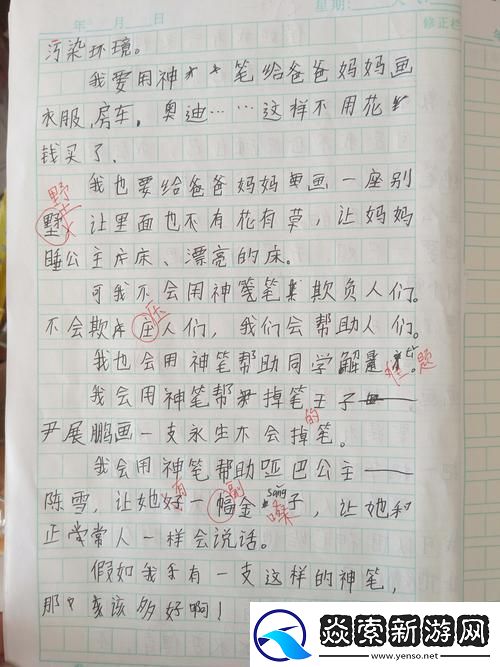 年 月 日 星期:
修正栏
污染环境。
我要用神笔给爸爸妈妈画
衣服、房车、奥迪……这样不用花
钱买了、
野
我也要给爸爸妈妈画一座别
墅 让里面也不有花有草,让妈妈
睡公主床、漂亮的床。
可我不会用神笔欺负人们。
压
不会欺庄人们,我们会帮助人们。
我也会用神笔帮助同学解 难题。
我会用神笔帮掉笔王子——
的
尹展鹏画一支永生不会掉笔。
我会用神笔帮助哑巴公主——
有 副 sǎng
陈雪,让她好一幅金嗓子,让她和
正常人一样会说话。
假如我有一支这样的神笔,
那该多好啊!
焱索新游网
www.yenso.net